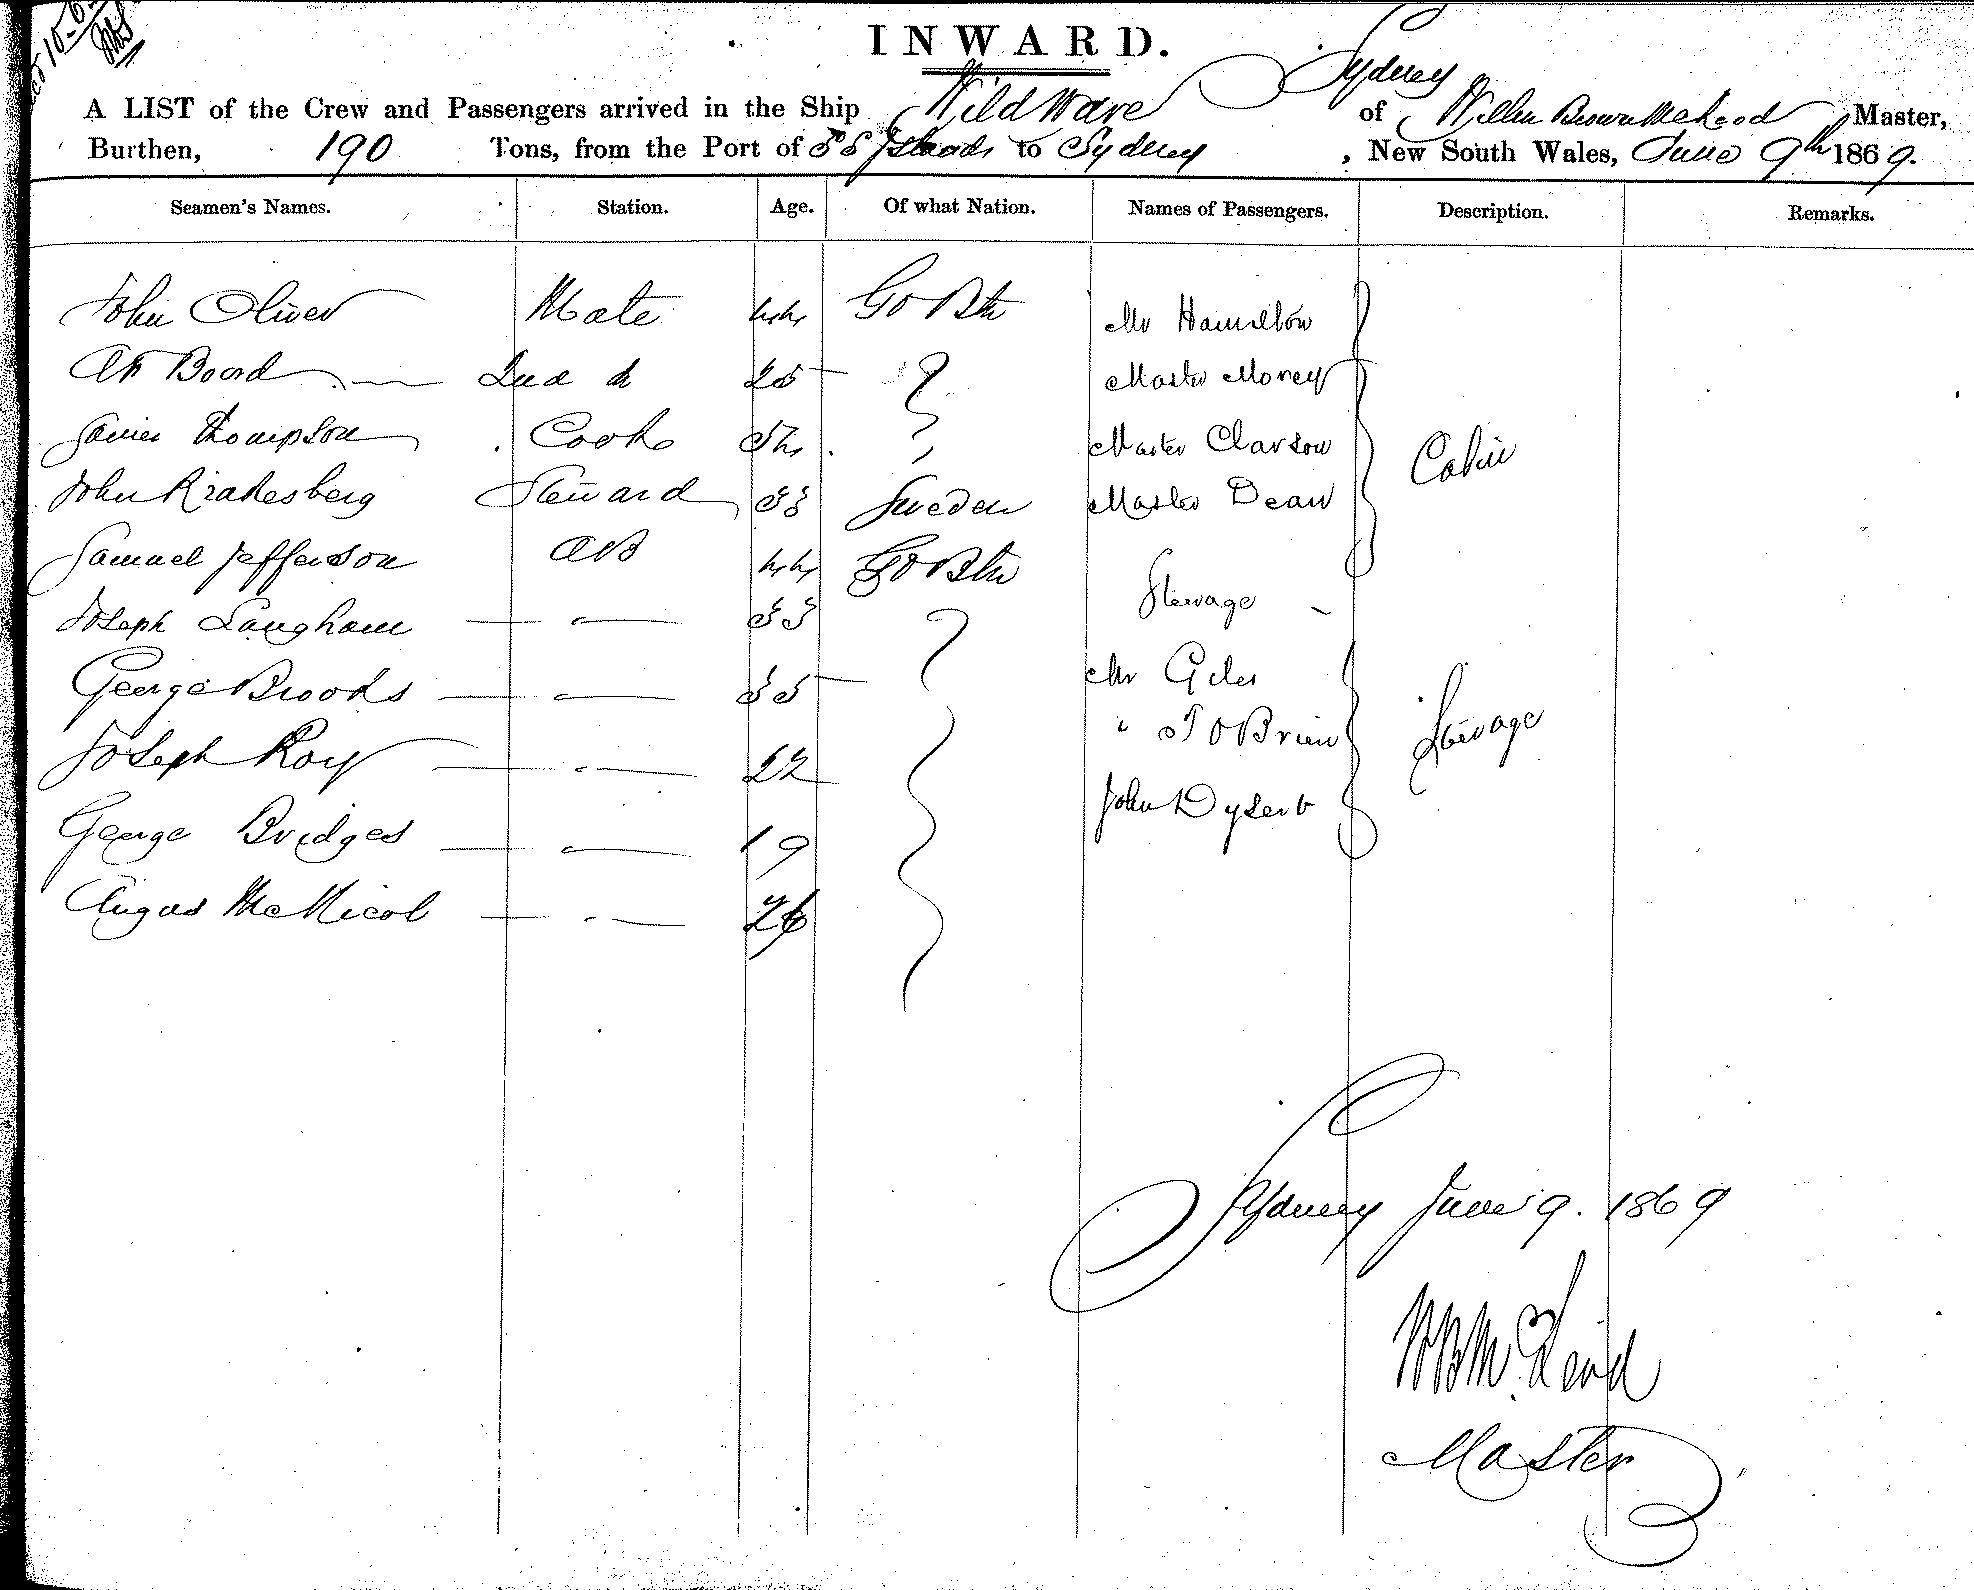 INWARD.
Sydney
A LIST of the Crew and Passengers arrived in the Ship Wild Wave of Willm Brown McLeod, Master,
Burthen, 190 Tons, from the Port of S S Islands to Sydney, New South Wales, June 9th 1869.
Seamen's Names. Station. Age. Of what Nation. Names of Passengers. Description. Remarks.
John Oliver Mate 44 Gt Btn Mr Hamilton
Board 2nd do 25 " Master Money
James Thompson Cook 54 " Master Clarson Cabin
John Steward 33 Sweden Master Dean
Samuel Jefferson AB 44 Gt Btn
Steerage -
Joseph Langham — " — 33 "
George Broods — " — 35 Mr Giles
Joseph Roy — " — 22 " T O Brien Steerage
George Bridges — " — 19 John Dysert
Angus McNicol — " — 24
Sydney June 9. 1869
W B McLeod
Master